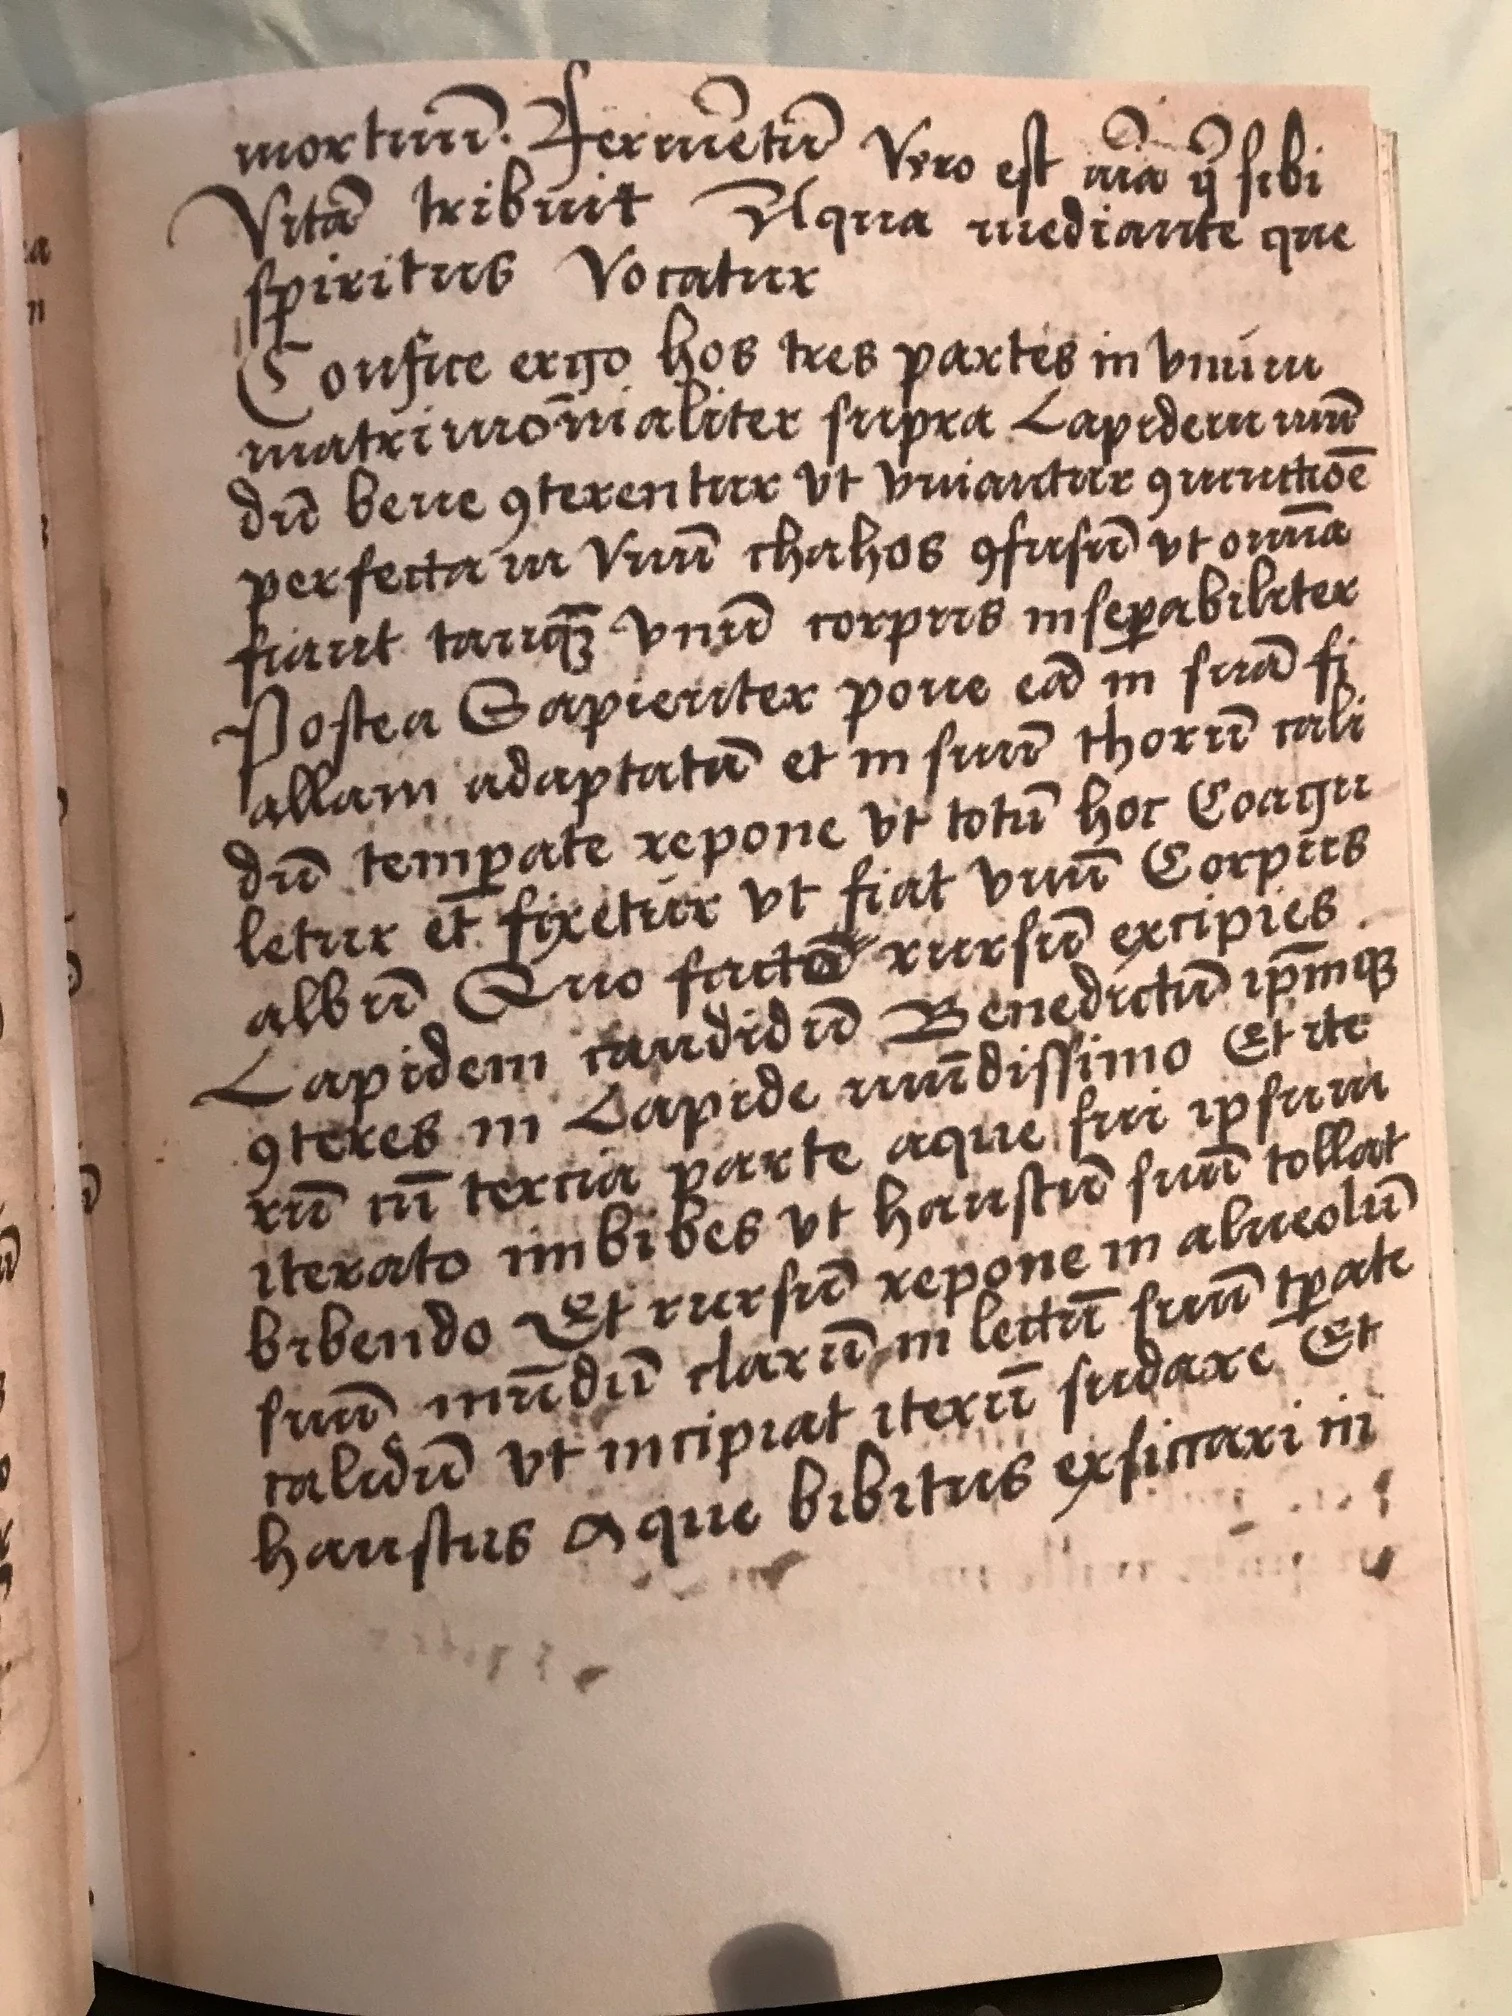 mortuū. Fermētū Vero est aīa q̄ sibi
Vitā tribuit Aqua mediante que
spiritus Vocatur
Confice ergo hos tres partes in vnum
matrimōnialiter supra Lapidem mū
dū bene ꝯterentur vt vniantur ꝯiunctiōe
perfecta in Vnū chahos ꝯfusū vt omīa
fiant tanqȝ vnū corpus insepabiliter
Postea Sapienter pone eā in suā fi
allam adaptatā et in suū thorū cali
dū tempate repone vt totū hoc Coagu
letur et fixetur vt fiat vnū Corpus
albū Quo facto rursū excipies
Lapidem candidū Benedictū ip̄mqȝ
ꝯteres in Lapide mūdissimo Et ite
rū cū tercia parte aque sui ipsum
iterato imbibes vt haustū suū tollat
bibendo Et rursū repone in alueolū
suū mūdū clarū in lectū suū tp̄ate
calidū vt incipiat iterū sudare Et
haustus Aque bibitus exsiccari in